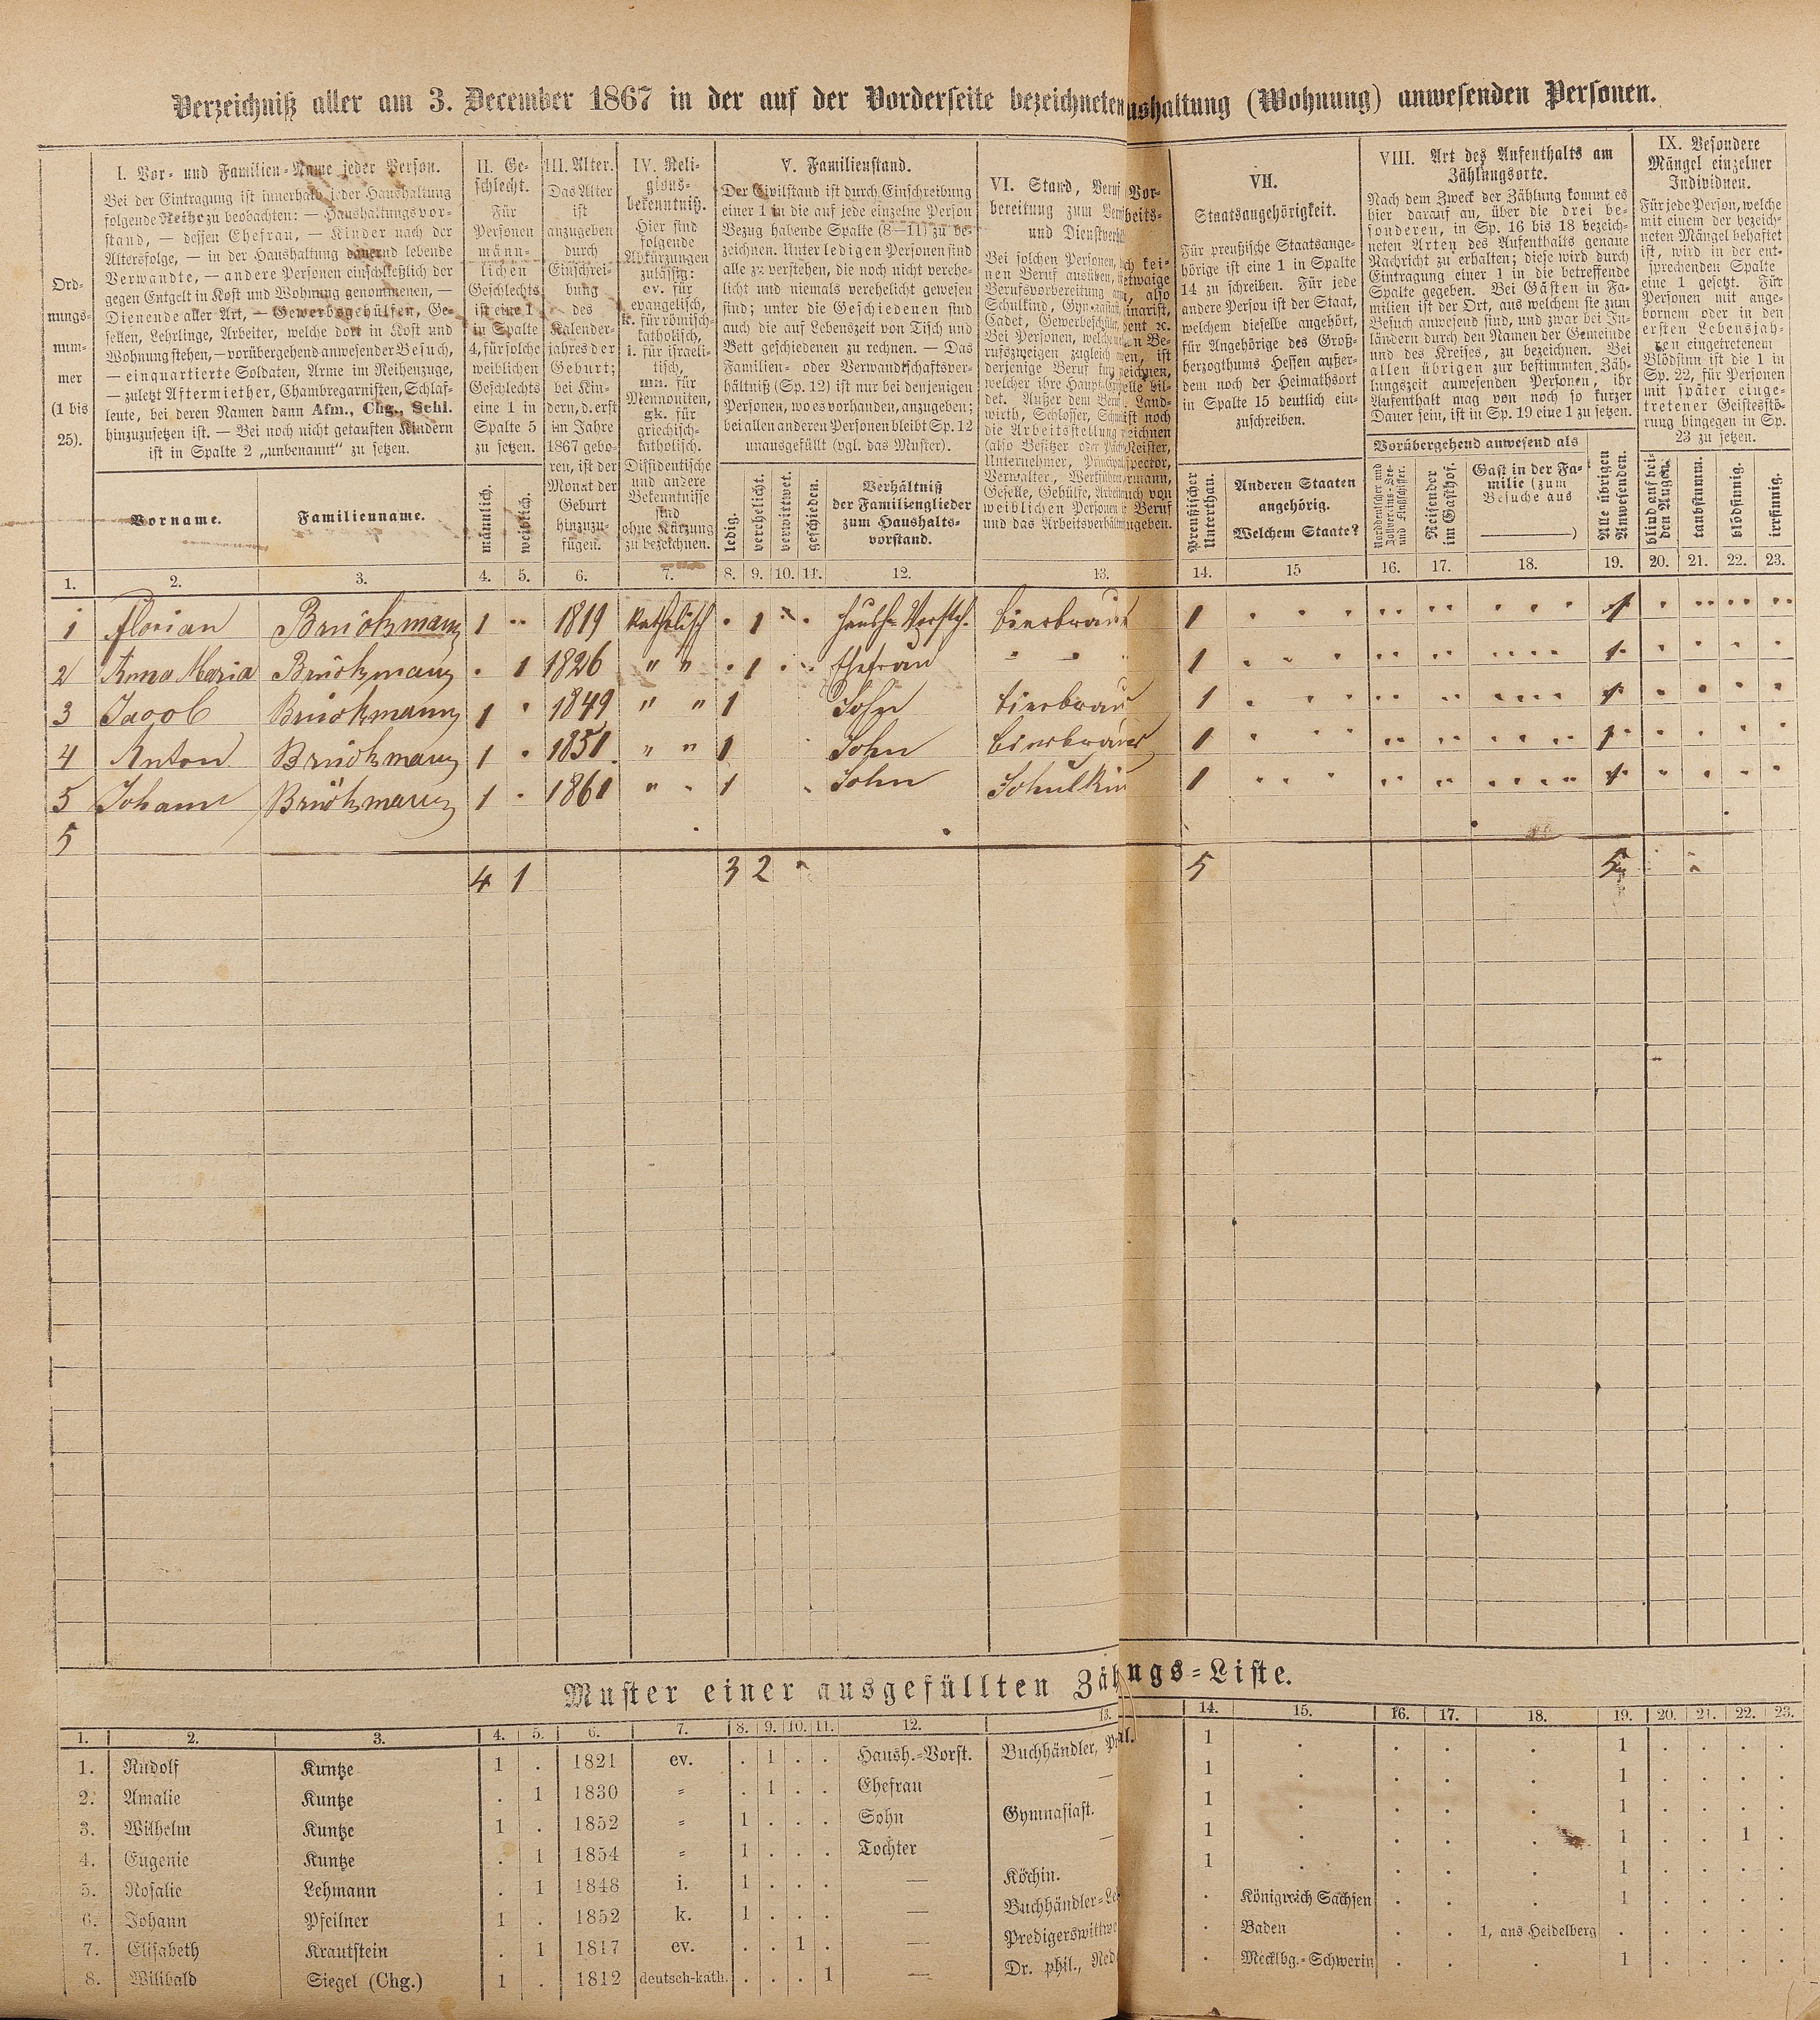 Verzeichniß aller am 3. December 1867 in der auf der Vorderseite bezeichneten ushaltung (Wohnung) anwesenden Personen.
Ord-
nungs-
num-
mer
(1 bis
25).
I. Vor- und Familien-Name jeder Person.
Bei der Eintragung ist innerhalb jeder Haushaltung
folgende Reihe zu beobachten: — Haushaltungsvor-
stand, — dessen Ehefrau, — Kinder nach der
Altersfolge, — in der Haushaltung dauernd lebende
Verwandte, — andere Personen einschließlich der
gegen Entgelt in Kost und Wohnung genommenen, —
Dienende aller Art, — Gewerbsgehülfen, Ge-
sellen, Lehrlinge, Arbeiter, welche dort in Kost und
Wohnung stehen, — vorübergehend anwesender Besuch,
— einquartierte Soldaten, Arme im Reihenzuge,
— zuletzt Aftermiether, Chambregarnisten, Schlaf-
leute, bei deren Namen dann Afm., Chg., Schl.
hinzuzusetzen ist. — Bei noch nicht getauften Kindern
ist in Spalte 2 „unbenannt“ zu setzen.
Vorname.
Familienname.
II. Ge-
schlecht.
Für
Personen
männ-
lichen
Geschlechts
ist eine 1
in Spalte
4, für solche
weiblichen
Geschlechts
eine 1 in
Spalte 5
zu setzen.
männlich.
weiblich.
III. Alter.
Das Alter
ist
anzugeben
durch
Einschrei-
bung
des
Kalender-
jahres der
Geburt;
bei Kin-
dern, d. erst
im Jahre
1867 gebo-
ren, ist der
Monat der
Geburt
hinzuzu-
fügen.
IV. Reli-
gions-
bekenntniß.
Hier sind
folgende
Abkürzungen
zulässig:
ev. für
evangelisch,
k. für römisch-
katholisch,
i. für israeli-
tisch,
mn. für
Mennoniten,
gk. für
griechisch-
katholisch.
Dissidentische
und andere
Bekenntnisse
sind
ohne Kürzung
zu bezeichnen.
V. Familienstand.
Der Civilstand ist durch Einschreibung
einer 1 in die auf jede einzelne Person
Bezug habende Spalte (8—11) zu be-
zeichnen. Unter ledigen Personen sind
alle zu verstehen, die noch nicht verehe-
licht und niemals verehelicht gewesen
sind; unter die Geschiedenen sind
auch die auf Lebenszeit von Tisch und
Bett geschiedenen zu rechnen. — Das
Familien- oder Verwandtschaftsver-
hältniß (Sp. 12) ist nur bei denjenigen
Personen, wo es vorhanden, anzugeben;
bei allen anderen Personen bleibt Sp. 12
unausgefüllt (vgl. das Muster).
ledig.
verehelicht.
verwittwet.
geschieden.
Verhältniß
der Familienglieder
zum Haushalts-
vorstand.
VI. Stand, Beruf Vor-
bereitung zum Beru beits-
und Dienstverhä
Bei solchen Personen, ch kei-
nen Beruf ausüben, etwaige
Berufsvorbereitung also
Schulkind, Gymnasiast, inarist,
Cadet, Gewerbeschüler, dent ꝛc.
Bei Personen, welche n Be-
rufszweigen zugleich en, ist
derjenige Beruf zeichnen,
welcher ihre Haupt-Er elle bil-
det. Außer dem Beru Land-
wirth, Schlosser, Schm ist noch
die Arbeitsstellung eichnen
(also Besitzer oder Päch Meister,
Unternehmer, Principal spector,
Verwalter, Werkführer rmann,
Geselle, Gehülfe, Arbei uch von
weiblichen Personen Beruf
und das Arbeitsverhält ugeben.
VII.
Staatsangehörigkeit.
Für preußische Staatsange-
hörige ist eine 1 in Spalte
14 zu schreiben. Für jede
andere Person ist der Staat,
welchem dieselbe angehört,
für Angehörige des Groß-
herzogthums Hessen außer-
dem noch der Heimathsort
in Spalte 15 deutlich ein-
zuschreiben.
Preußischer
Unterthan.
Anderen Staaten
angehörig.
Welchem Staate?
VIII. Art des Aufenthalts am
Zählungsorte.
Nach dem Zweck der Zählung kommt es
hier darauf an, über die drei be-
sonderen, in Sp. 16 bis 18 bezeich-
neten Arten des Aufenthalts genaue
Nachricht zu erhalten; diese wird durch
Eintragung einer 1 in die betreffende
Spalte gegeben. Bei Gästen in Fa-
milien ist der Ort, aus welchem sie zum
Besuch anwesend sind, und zwar bei In-
ländern durch den Namen der Gemeinde
und des Kreises, zu bezeichnen. Bei
allen übrigen zur bestimmten Zäh-
lungszeit anwesenden Personen, ihr
Aufenthalt mag von noch so kurzer
Dauer sein, ist in Sp. 19 eine 1 zu setzen.
Vorübergehend anwesend als
Norddeutscher und
Zollvereins-See-
und Flußschiffer.
Reisender
im Gasthof.
Gast in der Fa-
milie (zum
Besuche aus
)
Alle übrigen
Anwesenden.
IX. Besondere
Mängel einzelner
Individuen.
Für jede Person, welche
mit einem der bezeich-
neten Mängel behaftet
ist, wird in der ent-
sprechenden Spalte
eine 1 gesetzt. Für
Personen mit ange-
bornem oder in den
ersten Lebensjah-
ren eingetretenem
Blödsinn ist die 1 in
Sp. 22, für Personen
mit später einge-
tretener Geistesstö-
rung hingegen in Sp.
23 zu setzen.
blind auf bei-
den Augen.
taubstumm.
blödsinnig.
irrsinnig.
1. 2. 3. 4. 5. 6. 7. 8. 9. 10. 11. 12. 13. 14. 15 16. 17. 18. 19. 20. 21. 22. 23.
1 Florian Brückmann 1 1819 Katholisch 1 Haush. Vorsth. bierbrauer 1 1
2 Anna Maria Brückmann 1 1826 " " 1 Ehefrau 1 1
3 Jacob Brückmann 1 1849 " " 1 Sohn bierbrau 1 1
4 Anton Brückmann 1 1851 " " 1 Sohn bierbrauer 1 1
5 Johann Brückmann 1 1861 " " 1 Sohn Schulkin 1 1
5
4 1 3 2 5 5
Muster einer ausgefüllten Zäh ngs-Liste.
1. 2. 3. 4. 5. 6. 7. 8. 9. 10. 11. 12. 13. 14. 15. 16. 17. 18. 19. 20. 21. 22. 23.
1. Rudolf Kuntze 1 . 1821 ev. . 1 . . Haush.-Vorst. Buchhändler, Pr al. 1 . . . . 1 . . . .
2. Amalie Kuntze . 1 1830 = . 1 . . Ehefrau — 1 . . . . 1 . . . .
3. Wilhelm Kuntze 1 . 1852 = 1 . . . Sohn Gymnasiast. 1 . . . . 1 . . . .
4. Eugenie Kuntze . 1 1854 = 1 . . . Tochter — 1 . . . . 1 . . 1 .
5. Rosalie Lehmann . 1 1848 i. 1 . . . — Köchin. 1 . . . . 1 . . . .
6. Johann Pfeilner 1 . 1852 k. 1 . . . — Buchhändler-Le . Königreich Sachsen . . . 1 . . . .
7. Elisabeth Krautstein . 1 1817 ev. . . 1 . — Predigerswittwe . Baden . . 1, aus Heidelberg . . . . .
8. Wilibald Siegel (Chg.) 1 . 1812 deutsch-kath. . . . 1 — Dr. phil., Red . Mecklbg.-Schwerin . . . 1 . . . .